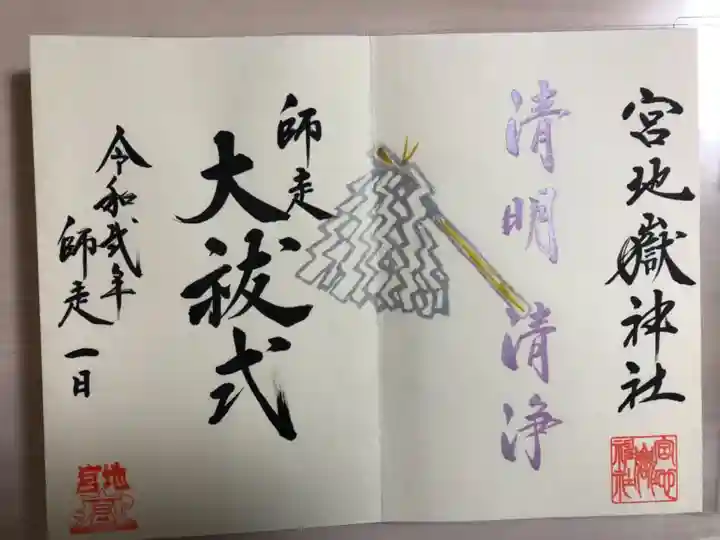 宮地嶽神社
清明 清浄
師走
大祓式
令和弐年
師走一日
宮地嶽神社
宮地
宮